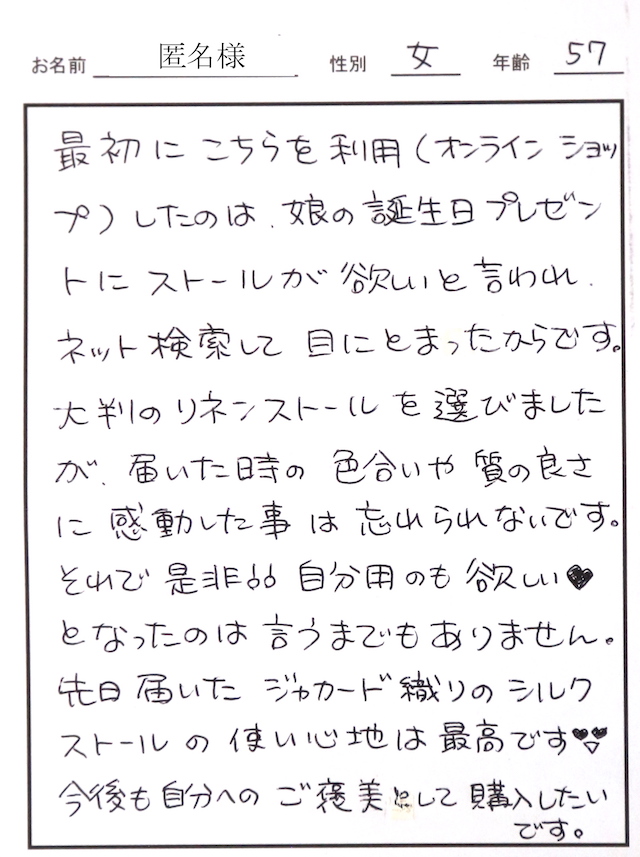 お名前 匿名様 性別 女 年齢 57
最初にこちらを利用(オンラインショッ
プ)したのは、娘の誕生日プレゼン
トにストールが欲しいと言われ、
ネット検索して目にとまったからです。
大判のリネンストールを選びました
が、届いた時の色合いや質の良さ
に感動した事は忘れられないです。
それで是非!!自分用のも欲しい♥
となったのは言うまでもありません。
先日届いたジャカード織りのシルク
ストールの使い心地は最高です♥♡
今後も自分へのご褒美として購入したい
です。